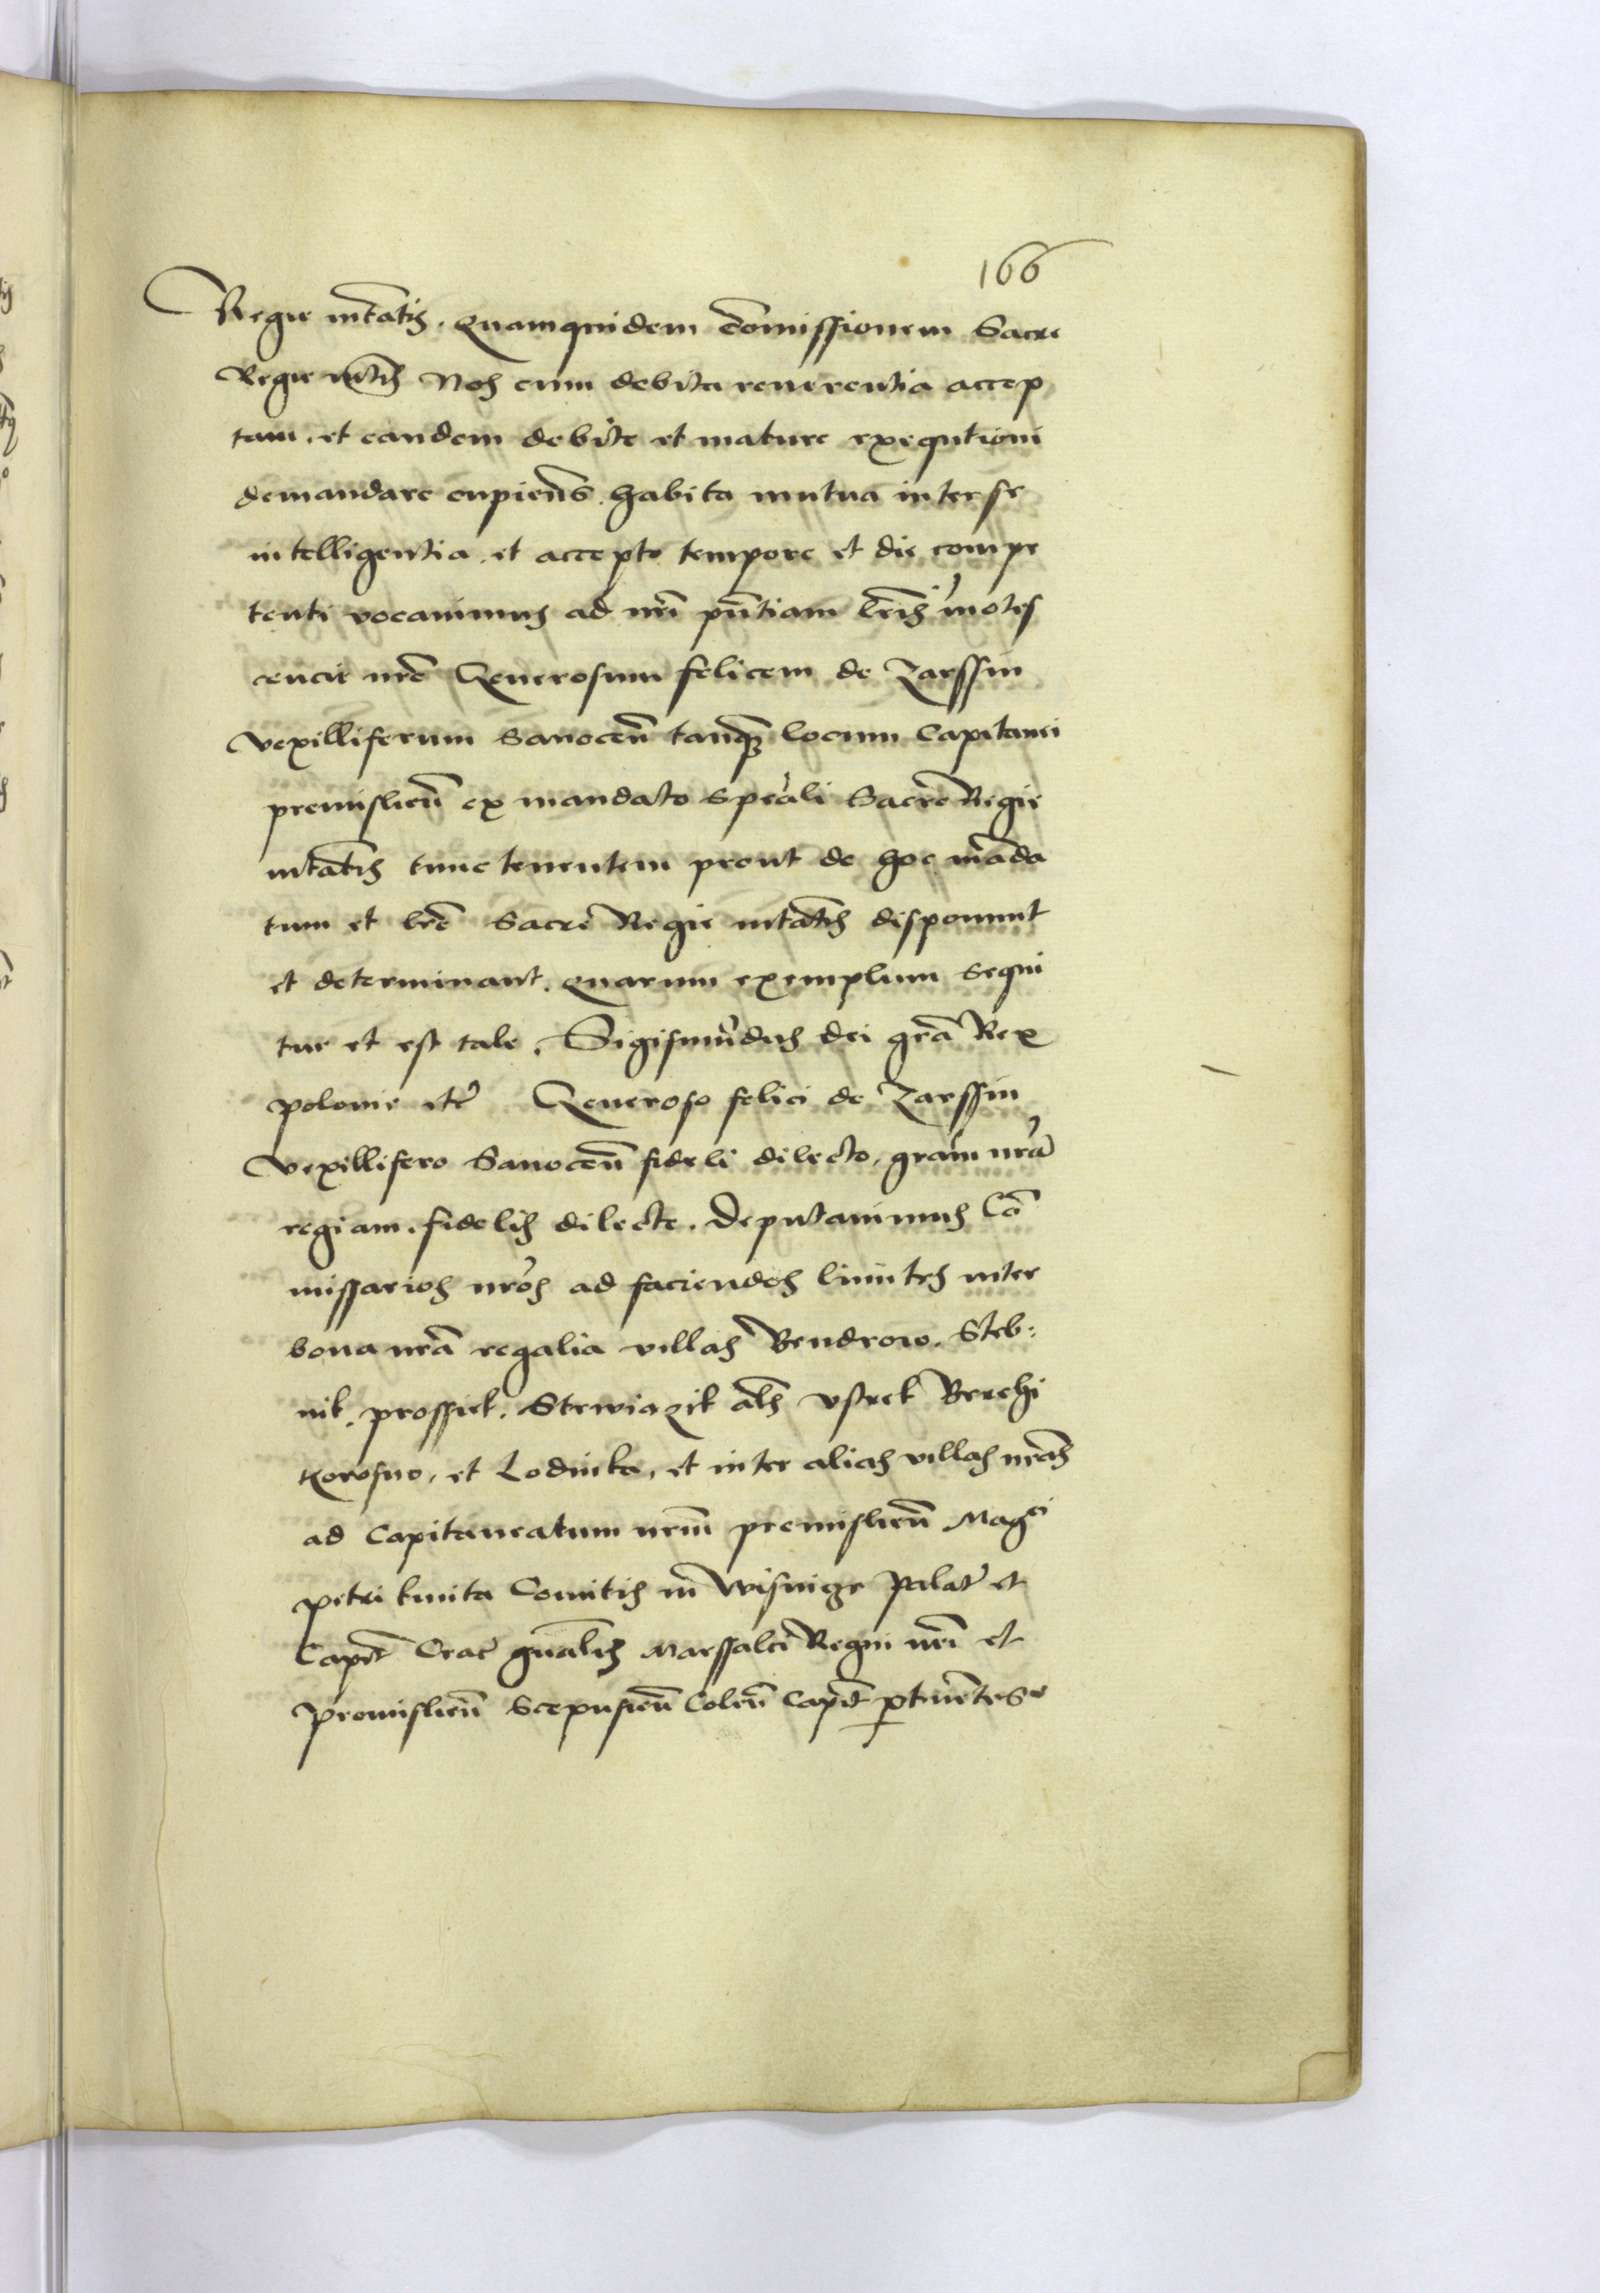 166
Regie mtatis. Quamquidem comissionem Sacre
Regie mtis Nos cum debita reuerentia accep
tam, et eandem debite et mature exequtioni
demandare cupiens. habita mutua inter se
intelligentia. et accepto tempore et die compe
tenti vocauimus ad nri pntiam lris inotes
cencie nre Generosum felicem de Zarssin
Vexilliferum Sanocen tanq locum Capitanei
premislien ex mandato speali Sacre Regie
mtatis tunc tenentem prout de hoc mada
tum et lre Sacre Regie mtatis disponunt
et determinant. quarum exemplum sequi
tur et est tale. Sigismudus dei gra Rex
polonie etc Generoso felici de Zarssin
Vexillifero Sanocen fideli dilecto. gram nra
regiam. fidelis dilecte. Deputauimus Co
missarios nros ad faciendos limites inter
bona nra regalia villas Bendrow. Steb:
nik. prossiek. Strwiazik als vstrek Brzehi
Korosno, et Lodinka, et inter alias villas nras
ad Capitaneatum nrm premislien Magci
petri kmita Comitis in Wisnicze Palat et
Capit Crac gnalis Marssalci Regni nri et
Premislien Scepusien Colen Capit ptinentes